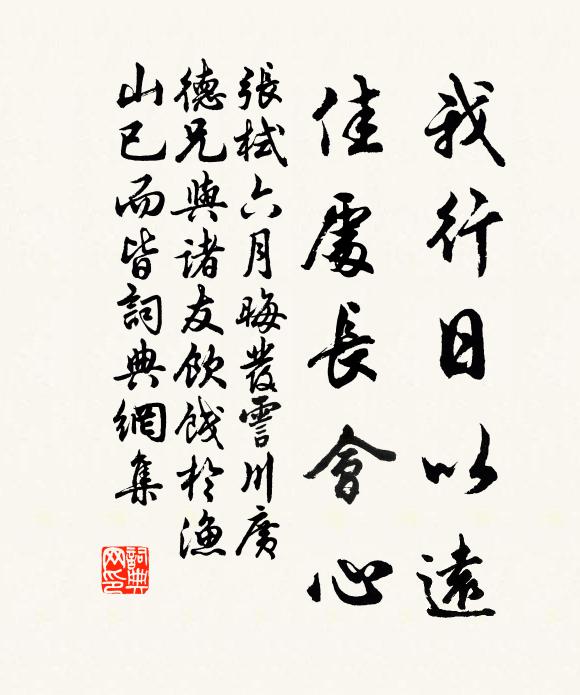 我行日以遠
佳處長會心
張栻六月晦發雲川廣
德兄與諸友飲餞於漁
山已而皆詞典網集
詞典網印